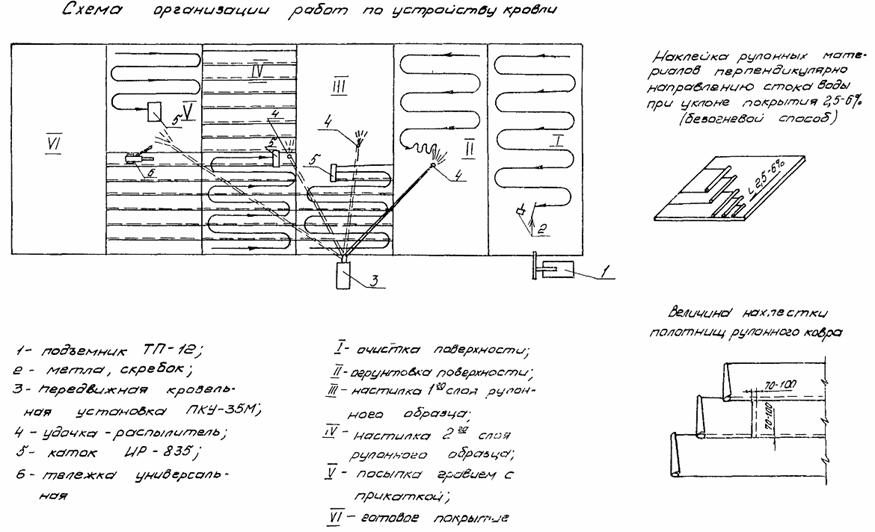 Схема организации работ по устройству кровли
VI
V
IV
III
II
I
5
4
5
6
4
5
4
2
3
1
Наклейка рулонных мате-
риалов перпендикулярно
направлению стока воды
при уклоне покрытия 2,5-6%
(безогневой способ)
i 2,5-6%
Величина нахлестки
полотнищ рулонного ковра
70-100
70-100
1- подъемник ТП-12;
2- метла, скребок;
3- передвижная кровель-
ная установка ПКУ-35М;
4- удочка-распылитель;
5- каток ИР-835;
6- тележка универсаль-
ная
I- очистка поверхности;
II- огрунтовка поверхности;
III- настилка 1го слоя рулон-
ного образца;
IV- настилка 2го слоя
рулонного образца;
V- посыпка гравием с
прикаткой;
VI- готовое покрытие